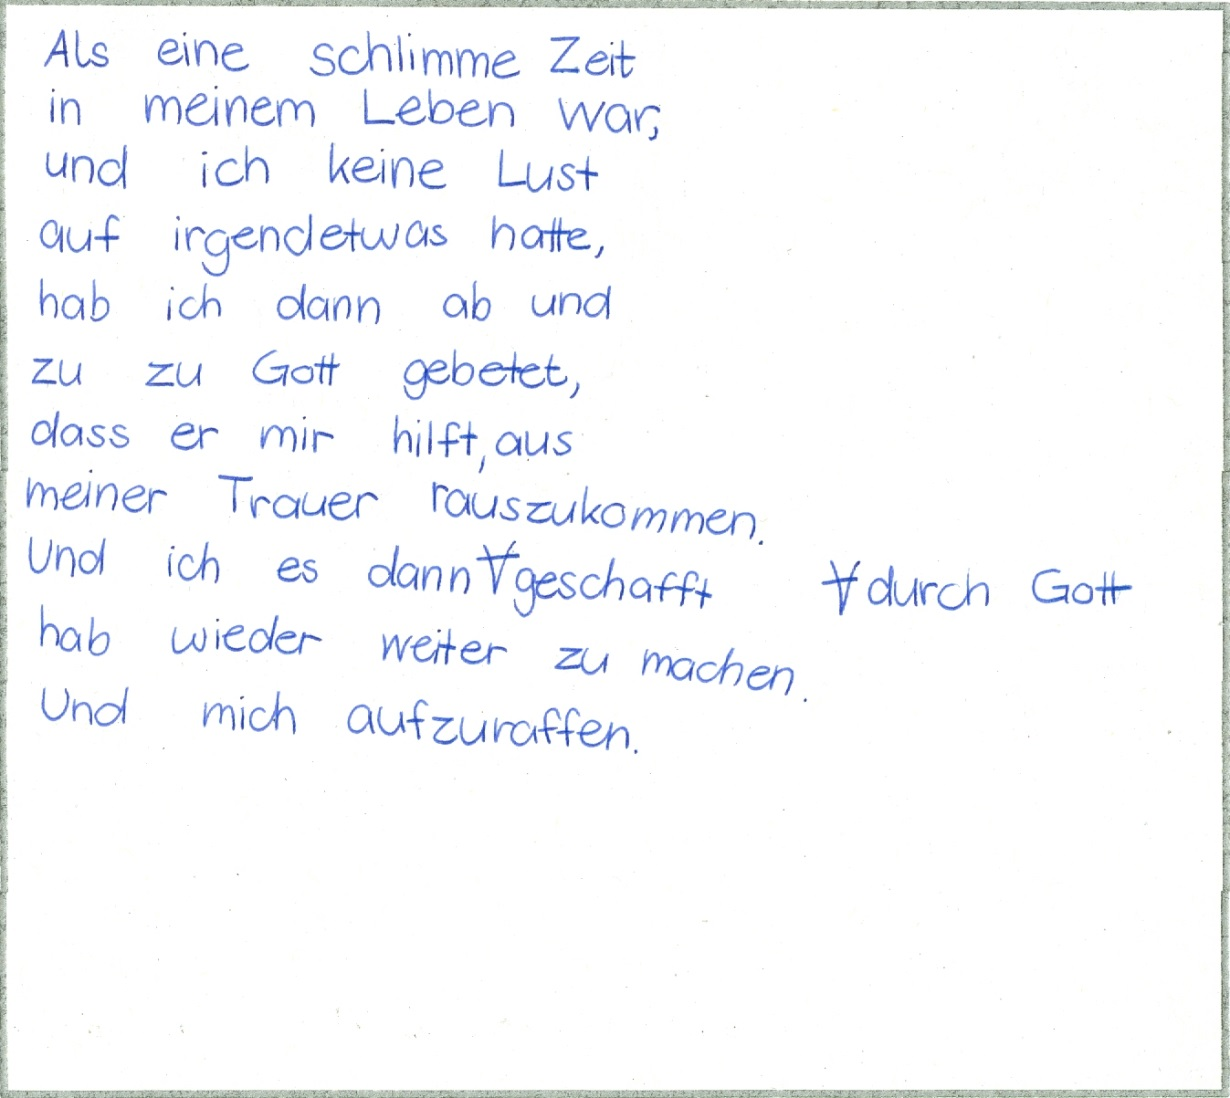 Als eine schlimme Zeit
in meinem Leben war,
und ich keine Lust
auf irgendetwas hatte,
hab ich dann ab und
zu zu Gott gebetet,
dass er mir hilft, aus
meiner Trauer rauszukommen.
Und ich es dann ∀ geschafft ∀ durch Gott
hab wieder weiter zu machen.
Und mich aufzuraffen.